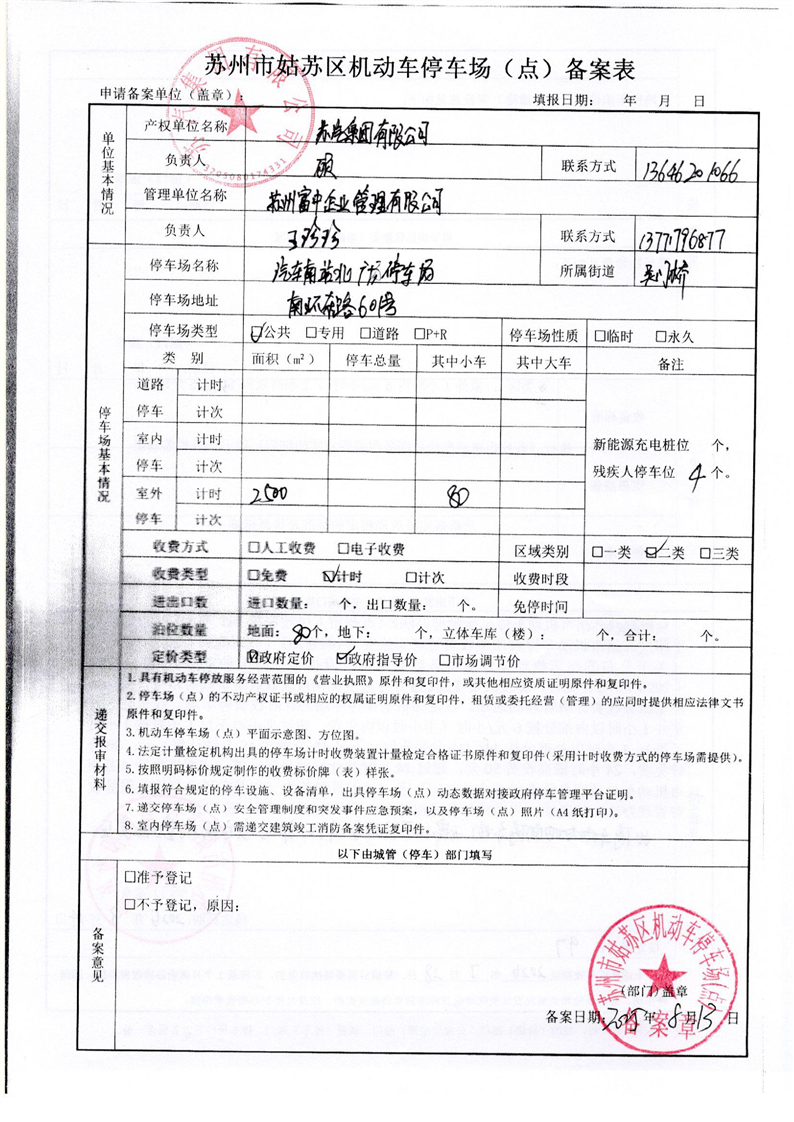 苏州市姑苏区机动车停车场（点）备案表
申请备案单位（盖章）： 填报日期： 年 月 日
集团有限公司
3205080174331
单位基本情况
产权单位名称 集团有限公司
负责人 顾 联系方式 13646201066
管理单位名称 苏州富中企业管理有限公司
负责人 王珍珍 联系方式 13771796877
停车场基本情况
停车场名称 汽车南站北广场停车场 所属街道 吴门桥
停车场地址 南环东路601号
停车场类型 ☑公共 □专用 □道路 □P+R 停车场性质 □临时 □永久
类 别 面积（m²） 停车总量 其中小车 其中大车 备注
道路 计时
停车 计次
室内 计时
停车 计次
室外 计时 2500 80
停车 计次
新能源充电桩位 个，
残疾人停车位 4 个。
收费方式 □人工收费 □电子收费 区域类别 □一类 ☑二类 □三类
收费类型 □免费 ☑计时 □计次 收费时段
进出口数 进口数量： 个，出口数量： 个。 免停时间
泊位数量 地面：80个，地下： 个，立体车库（楼）： 个，合计： 个。
定价类型 ☑政府定价 ☑政府指导价 □市场调节价
递交报审材料
1.具有机动车停放服务经营范围的《营业执照》原件和复印件，或其他相应资质证明原件和复印件。
2.停车场（点）的不动产权证书或相应的权属证明原件和复印件，租赁或委托经营（管理）的应同时提供相应法律文书
原件和复印件。
3.机动车停车场（点）平面示意图、方位图。
4.法定计量检定机构出具的停车场计时收费装置计量检定合格证书原件和复印件(采用计时收费方式的停车场需提供)。
5.按照明码标价规定制作的收费标价牌（表）样张。
6.填报符合规定的停车设施、设备清单，出具停车场（点）动态数据对接政府停车管理平台证明。
7.递交停车场（点）安全管理制度和突发事件应急预案，以及停车场（点）照片（A4纸打印）。
8.室内停车场（点）需递交建筑竣工消防备案凭证复印件。
以下由城管（停车）部门填写
备案意见
□准予登记
□不予登记，原因：
苏州市姑苏区机动车停车场(点)
（部门）盖章
备案日期：2025年8月13日
备案章